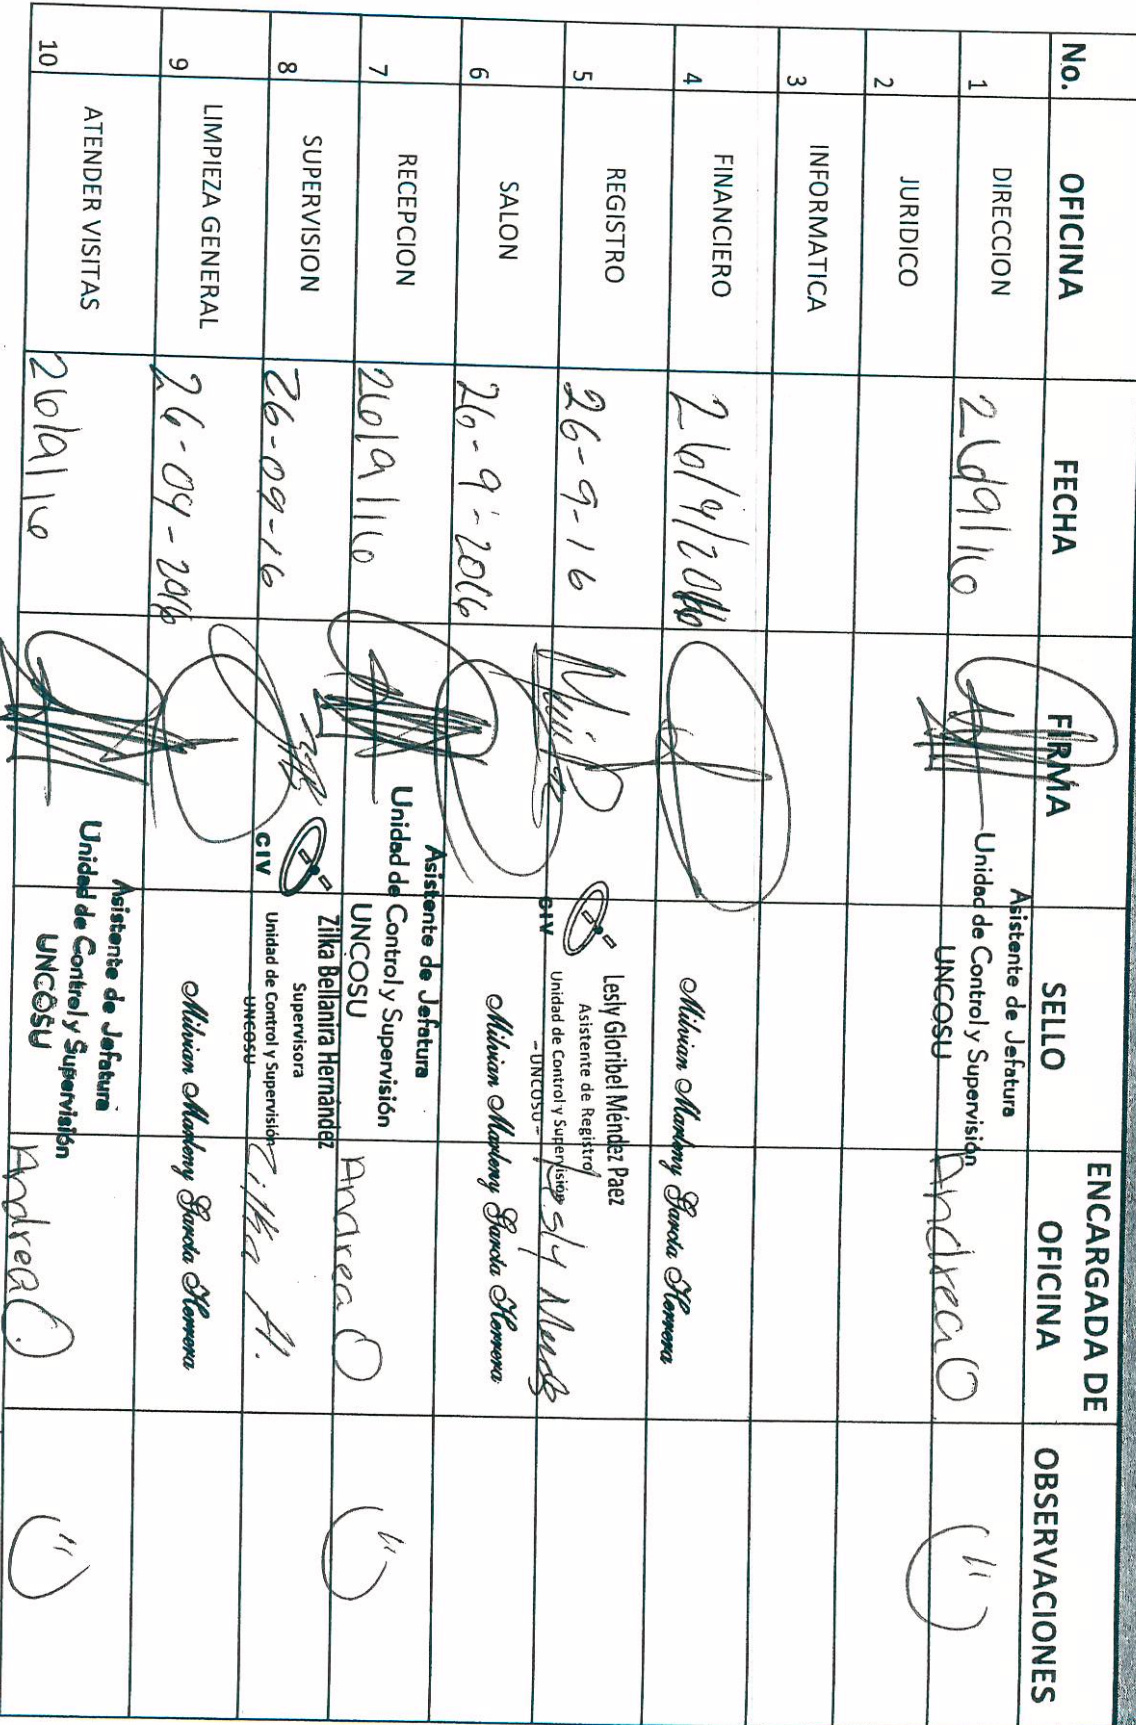 No. OFICINA FECHA FIRMA SELLO ENCARGADA DE OFICINA OBSERVACIONES
1 DIRECCION 26/9/16 Asistente de Jefatura
Unidad de Control y Supervisión
UNCOSU Andrea O
2 JURIDICO
3 INFORMATICA
4 FINANCIERO 26/9/2016 Milvian Marleny Garcia Herrera
5 REGISTRO 26-9-16 CIV Lesly Gloribel Méndez Paez
Asistente de Registro
Unidad de Control y Supervisión
-UNCOSU-
6 SALON 26-9-2016 Milvian Marleny Garcia Herrera
7 RECEPCION 26/9/16 Asistente de Jefatura
Unidad de Control y Supervisión
UNCOSU Andrea O
8 SUPERVISION 26-09-16 CIV Zilka Bellanira Hernández
Supervisora
Unidad de Control y Supervisión
-UNCOSU- Zilka H.
9 LIMPIEZA GENERAL 26-09-2016 Milvian Marleny Garcia Herrera
10 ATENDER VISITAS 26/9/16 Asistente de Jefatura
Unidad de Control y Supervisión
UNCOSU Andrea O.